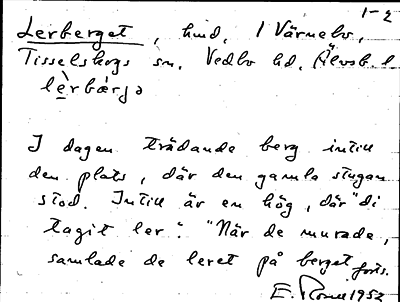 1-2
Lerberget, hmd. 1 Värnebo,
Tisselskogs sn. Vedbo hd. Älvsb. l.
lè̱rbærjə
I dagen trädande berg intill
den plats, där den gamla stugan
stod. Intill är en hög, där "di
tagit ler". "När de murade,
samlade de leret på berget forts.
E. 1952